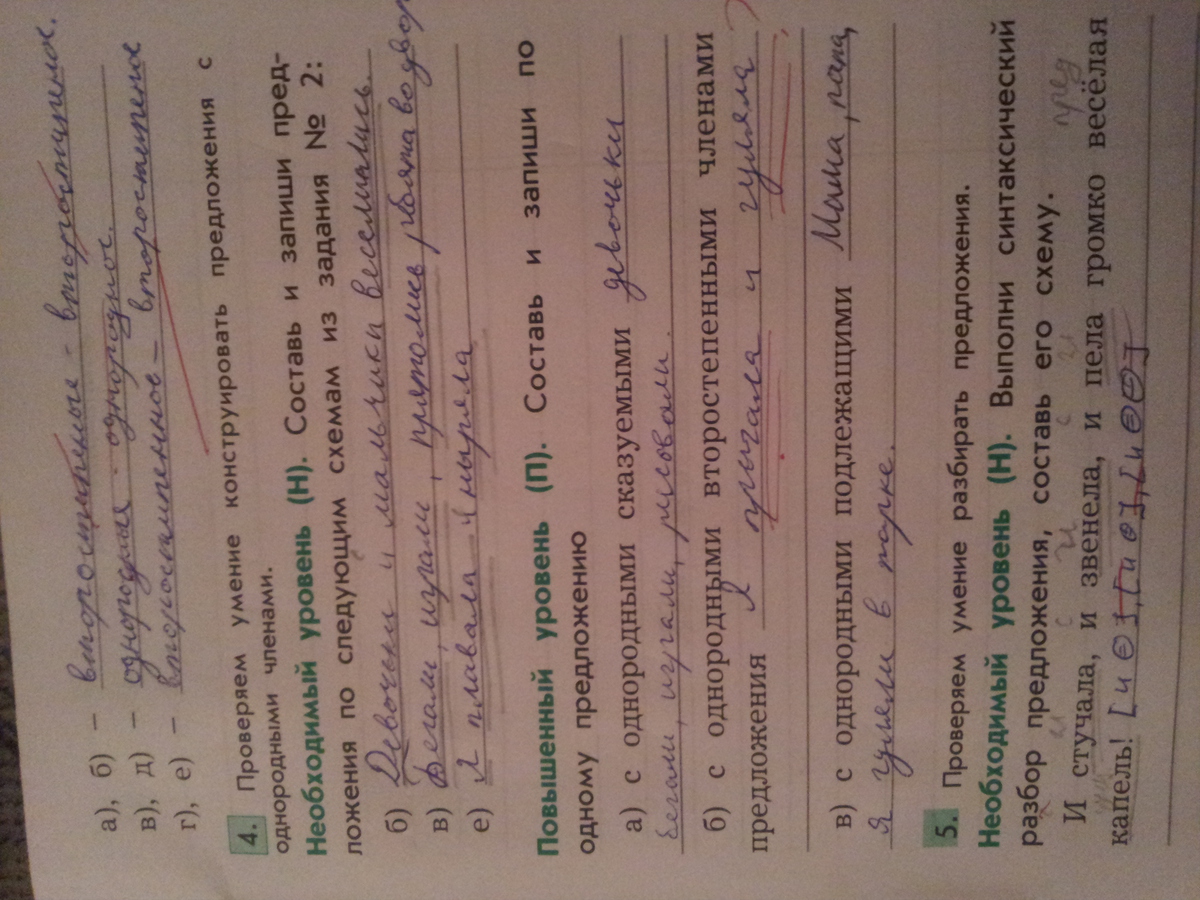 а), б) – второстипные - второстипное.
в), д) – однородныя - однородное.
г), е) – второстипенное – второстипеное
4. Проверяем умение конструировать предложения с
однородными членами.
Необходимый уровень (Н). Составь и запиши пред-
ложения по следующим схемам из задания № 2:
б) Девочьки и мальчики веселились.
в) Бегали, играли, ребята во двор
е) Я плавала и ныряла
Повышенный уровень (П). Составь и запиши по
одному предложению
а) с однородными сказуемыми девочьки
бегали, играли, рисовали.
б) с однородными второстепенными членами
предложения Я прыгала и гуляла
в) с однородными подлежащими Мама, папа,
я гуляли в парке.
5. Проверяем умение разбирать предложения.
Необходимый уровень (Н). Выполни синтаксический
разбор предложения, составь его схему.
И стучала, и звенела, и пела громко весёлая
капель! [и ⊖],[и ⊖],[и ⊖⊖]